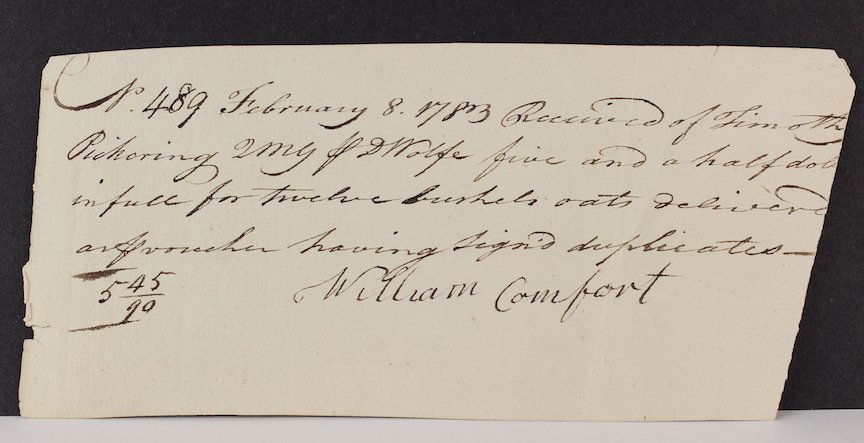 No. 489 February 8. 1783 Received of Timoth
Pickering 2MG ⅌ D Wolfe five and a half dol
in full for twelve bushels oats delivered
as ⅌ voucher having sign'd duplicates—
5 45/90 William Comfort